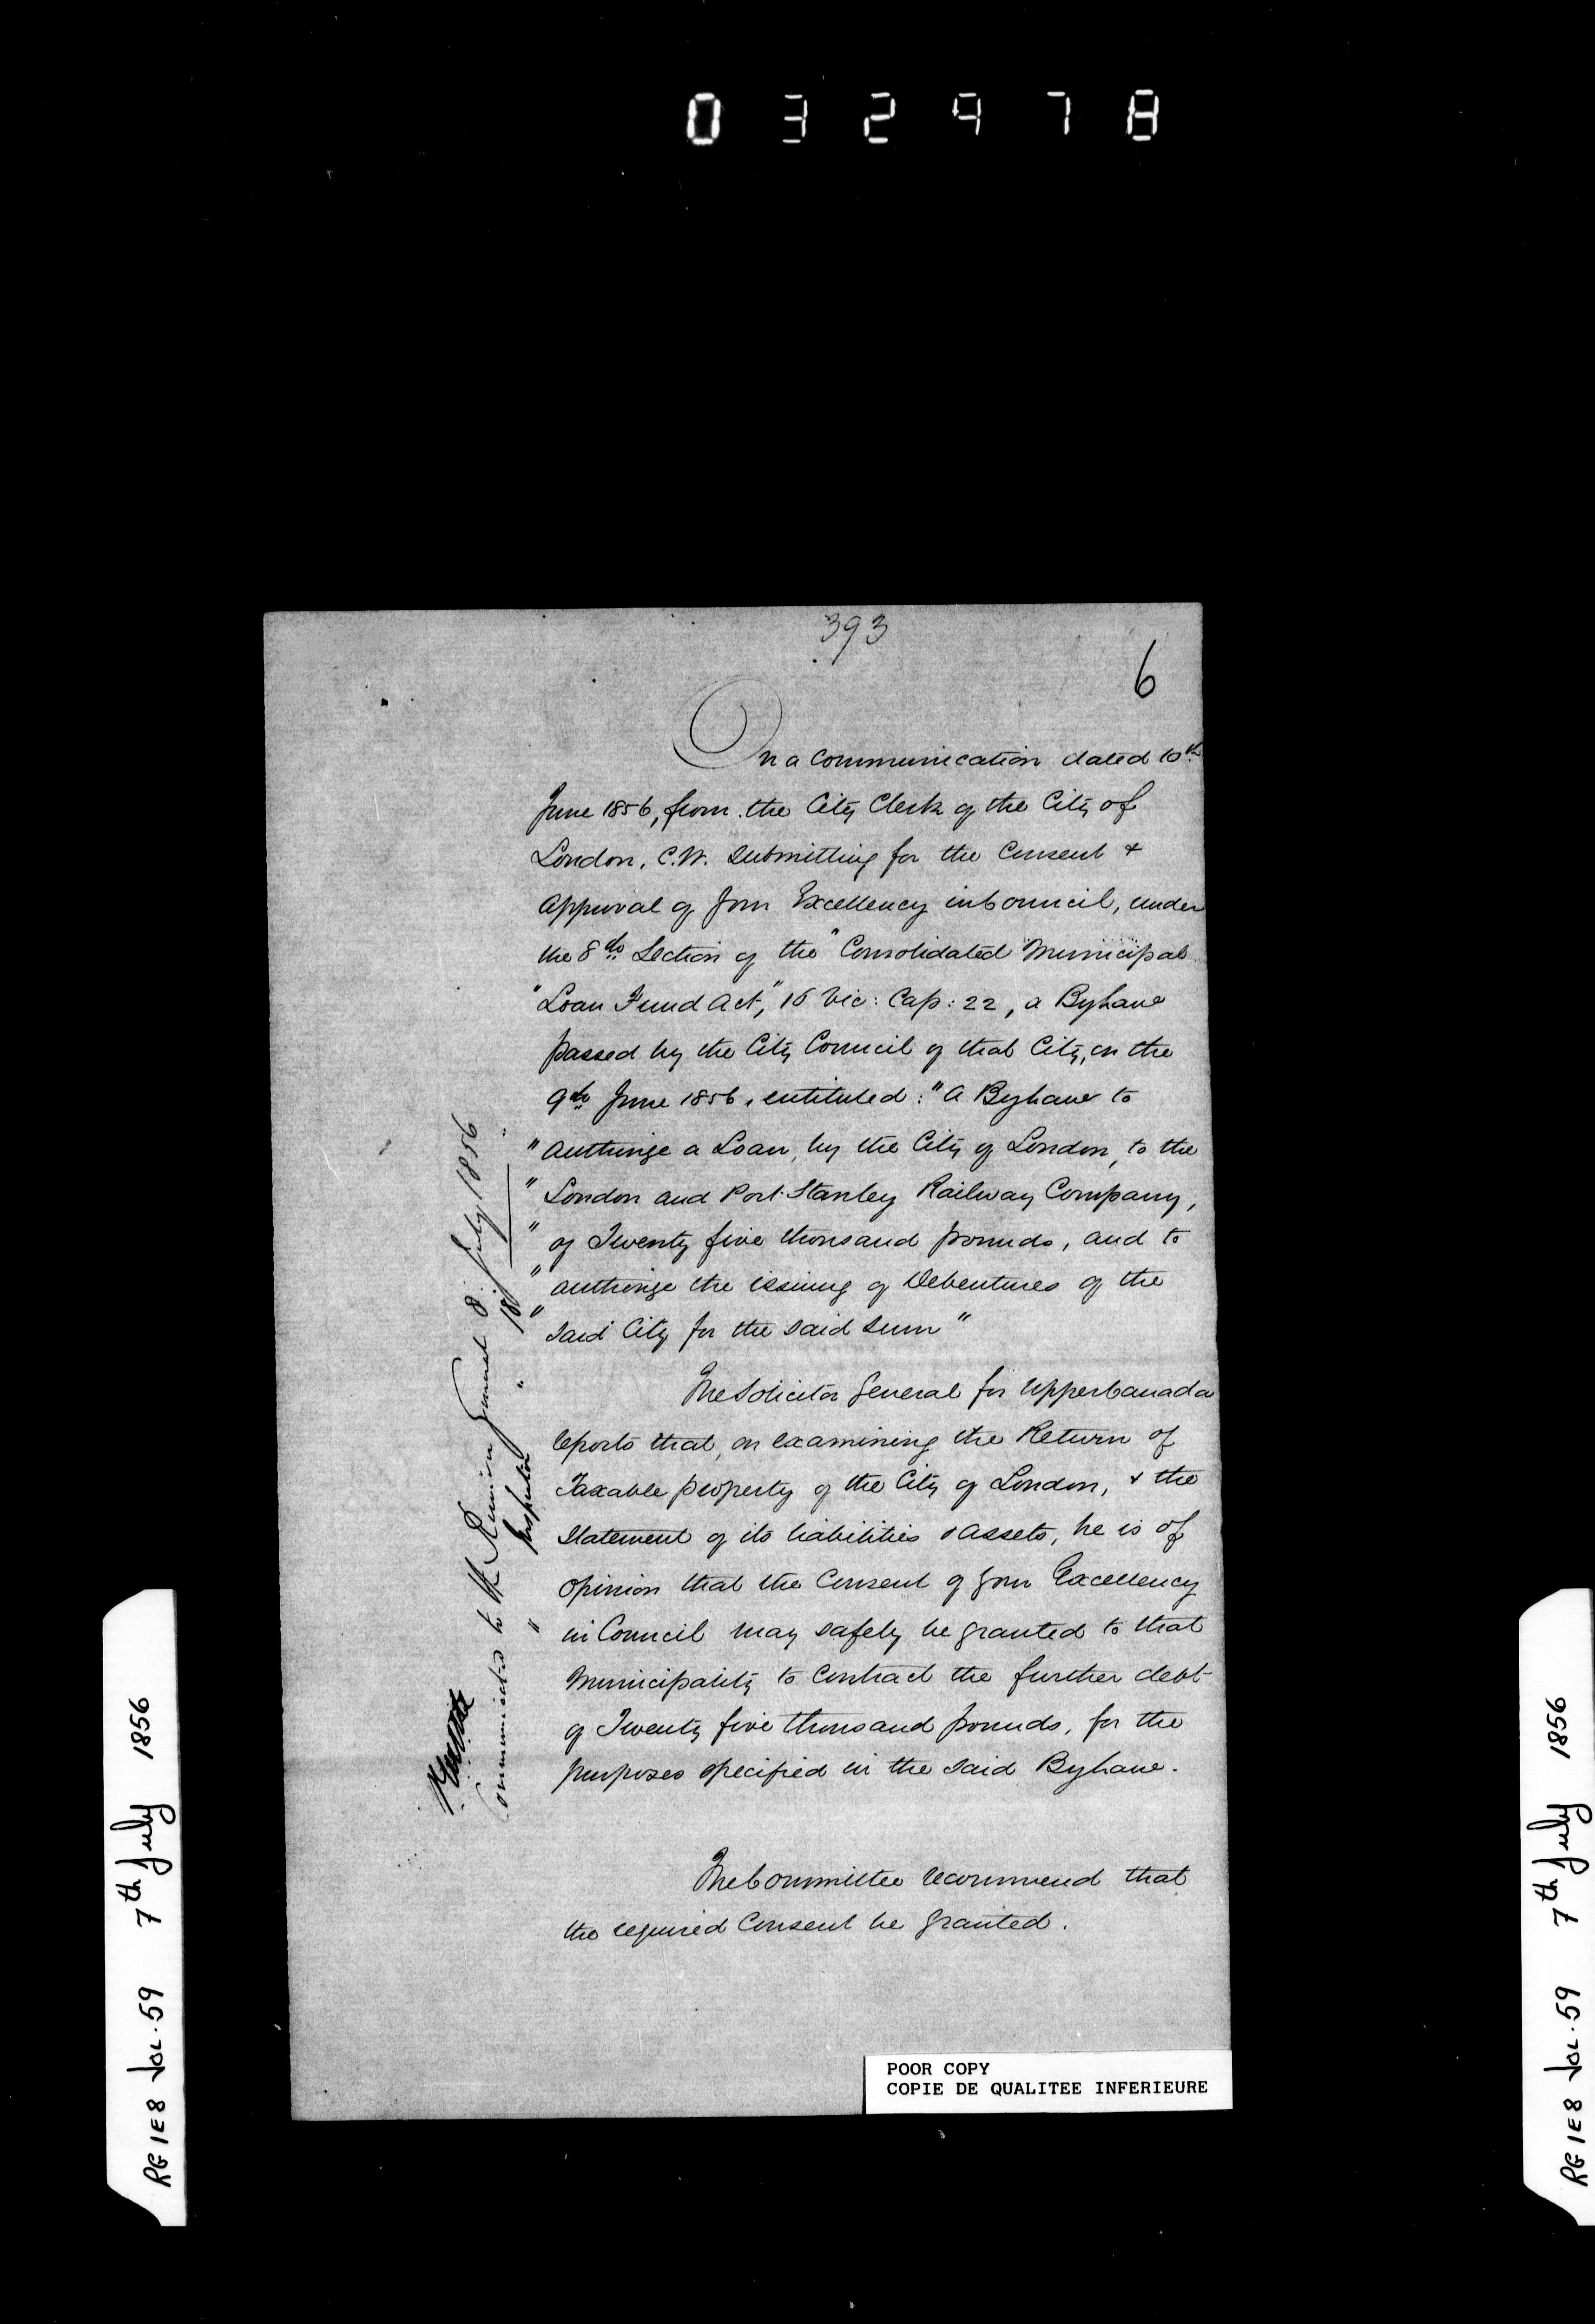 032978
393
6
On a Communication dated 10th
June 1856, from the City Clerk of the City of
London, C.W. Submitting for the Consent &
Approval of Your Excellency in Council, under
the 8th Section of the "Consolidated Municipal
"Loan Fund Act," 16 Vic: Cap: 22, a ByLaw
passed by the City Council of that City, on the
9th June 1856, entituled: "A ByLaw to
" authorize a Loan, by the City of London, to the
" London and Port Stanley Railway Company,
" of Twenty five thousand pounds, and to
" authorize the issuing of Debentures of the
" said City for the said Sum"
The Solicitor General for Upper Canada
reports that, on examining the Return of
Taxable property of the City of London, & the
Statement of its liabilities & assets, he is of
opinion that the Consent of Your Excellency
in Council may safely be granted to that
Municipality to Contract the further debt
of Twenty five thousand pounds, for the
purposes specified in the said ByLaw.
The Committee recommend that
the required Consent be granted.
Communicated to the Receiver General 8. July 1856
" Inspector " 18
POOR COPY
COPIE DE QUALITEE INFERIEURE
RG 1 E8 VOL. 59 7th July 1856
RG 1 E8 VOL. 59 7th July 1856